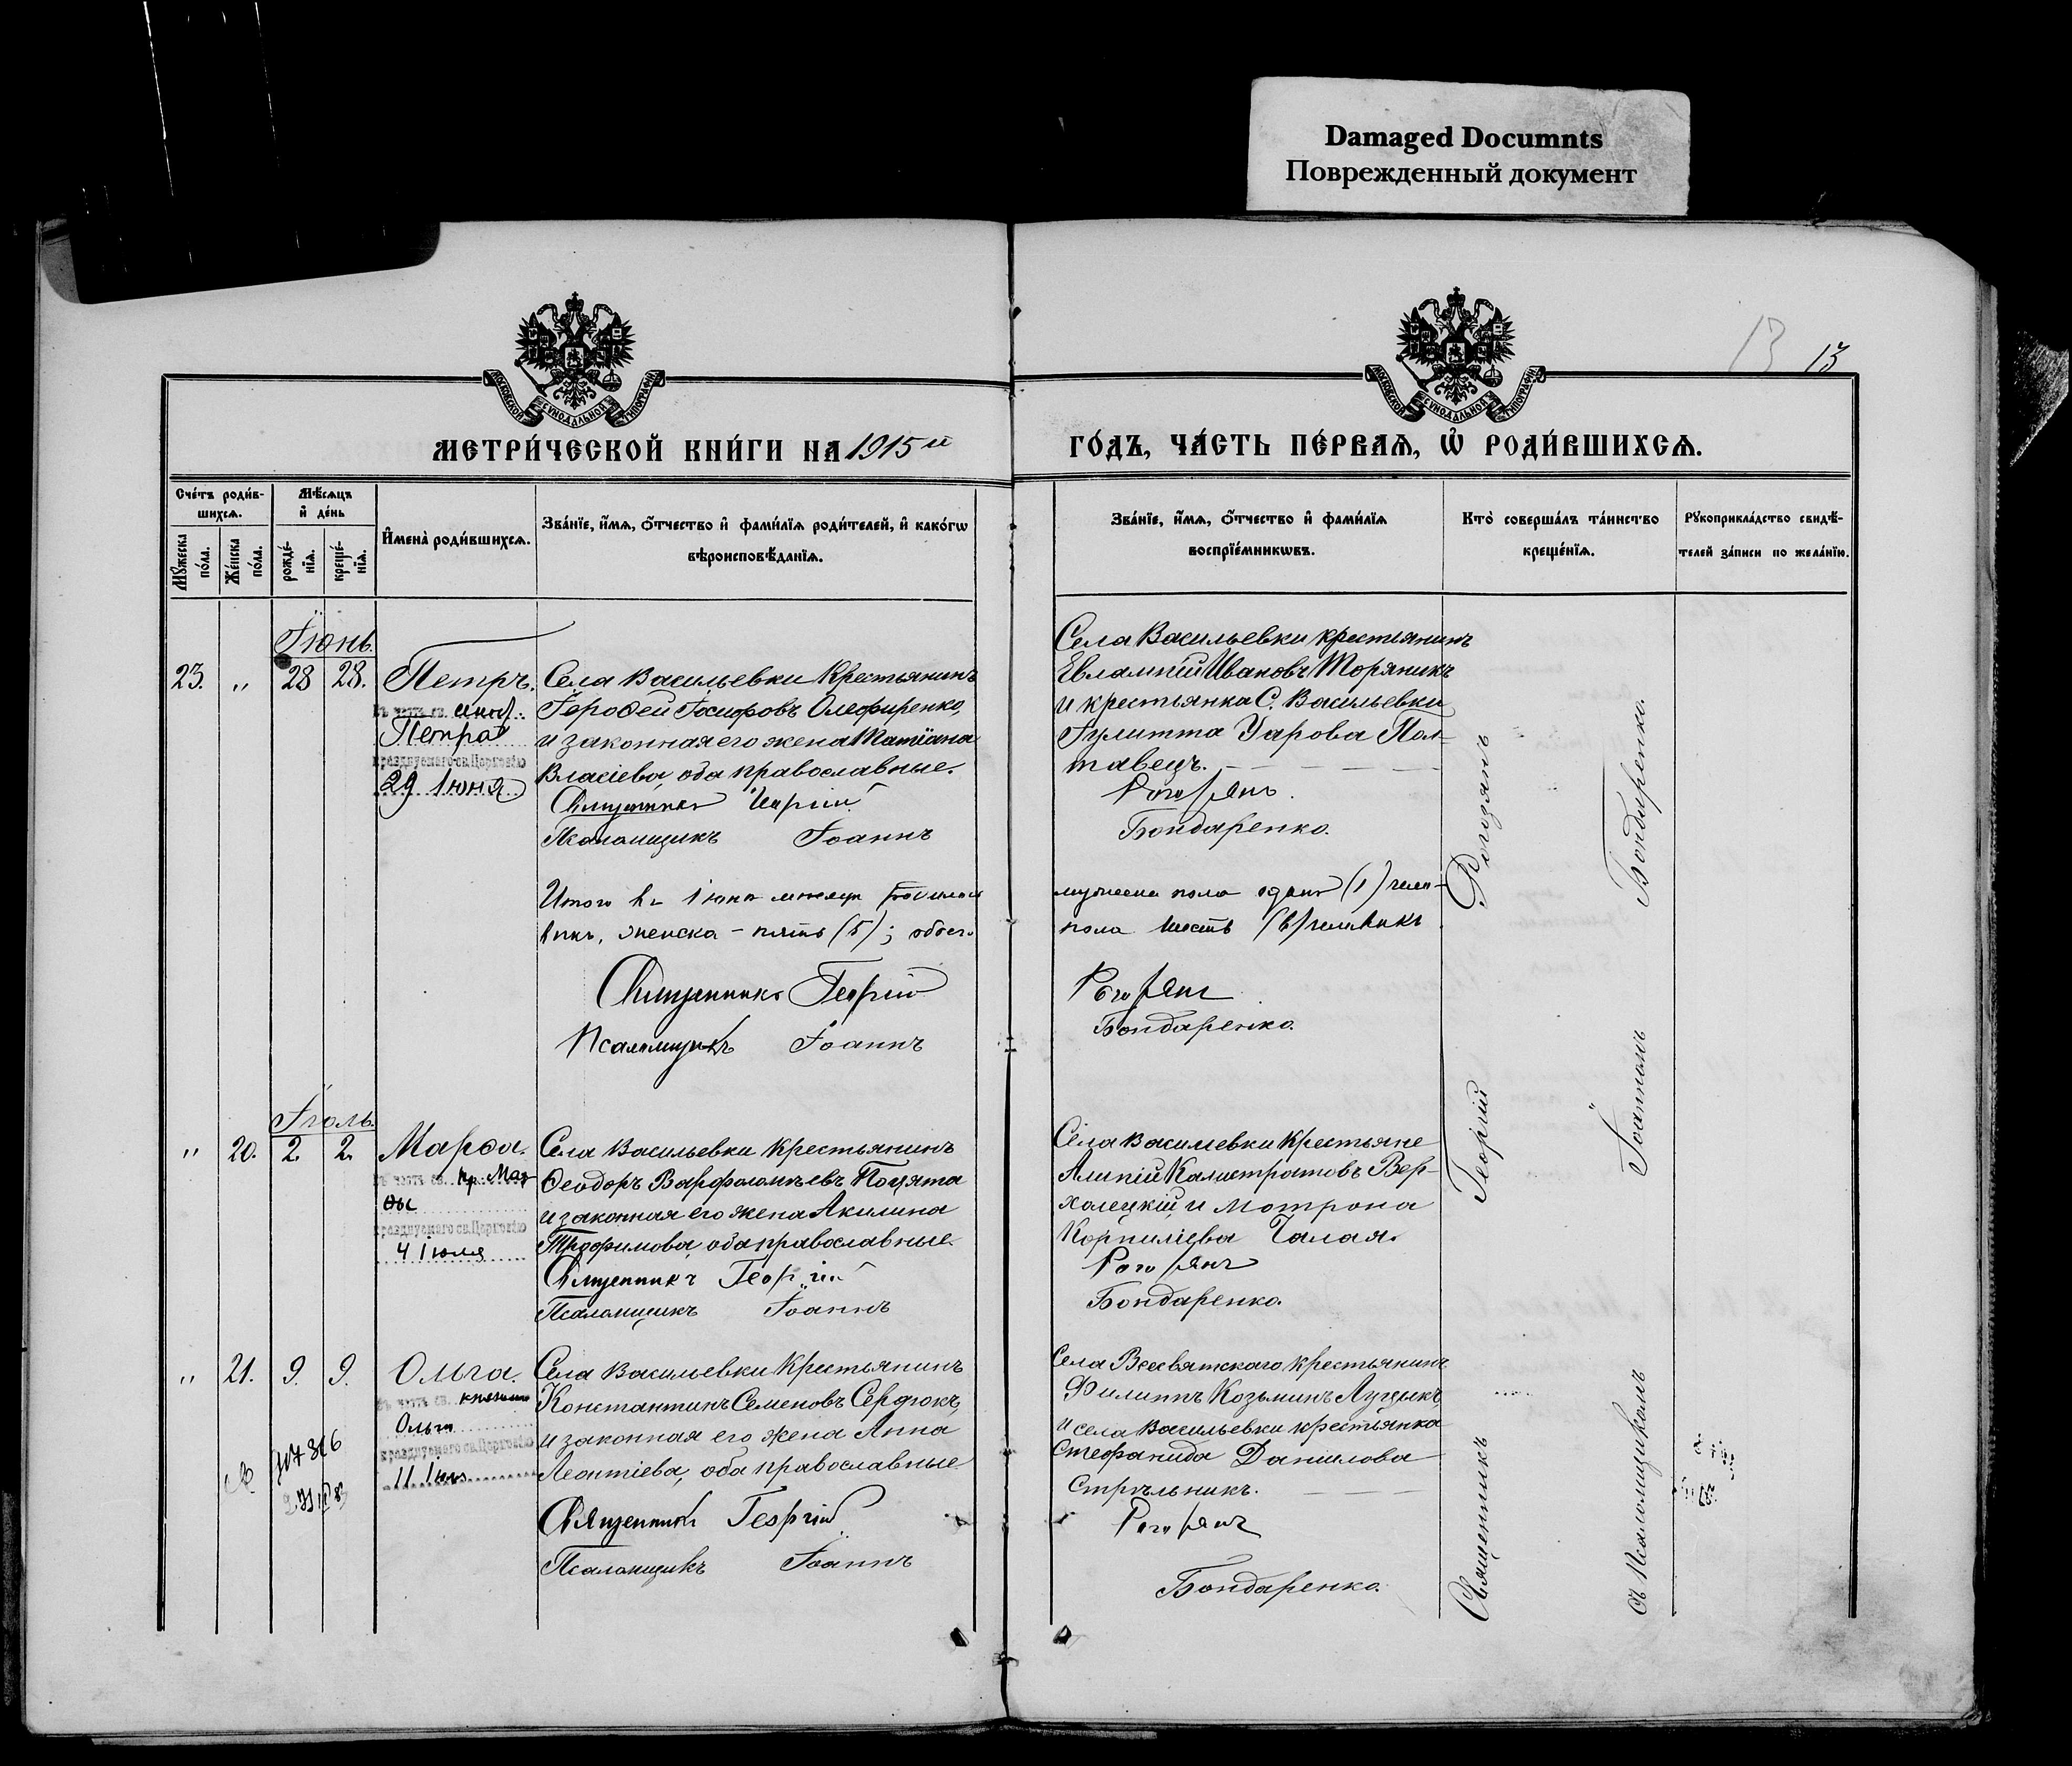 Damaged Documnts
Поврежденный документ
13 13
МОСКОВСКОЙ СѴНОДАЛЬНОЙ ТИПОГРАФІИ
МОСКОВСКОЙ СѴНОДАЛЬНОЙ ТИПОГРАФІИ
МЕТРИ́ЧЕСКОЙ КНИ́ГИ НА 1915й
ГО́ДЪ, ЧА́СТЬ ПЕ́РВАѦ, Ѡ҆ РОДИ́ВШИХСѦ.
Сче́тъ роди́в-
шихсѧ.
Мꙋжеска по́ла.
Же́нска по́ла.
Мѣ́сѧцъ
и҆ де́нь
рожде́нїѧ.
креще́нїѧ.
И҆мена̀ роди́вшихсѧ.
Зва́нїе, и҆́мѧ, ѻ҆́тчество и҆ фами́лїѧ роди́телей, и҆ како́гѡ
вѣроисповѣ́данїѧ.
Зва́нїе, и҆́мѧ, ѻ҆́тчество и҆ фами́лїѧ
воспрїе́мникѡвъ.
Кто̀ соверша́лъ та́инство
креще́нїѧ.
Рꙋкоприкла́дство свидѣ́-
телей за́писи по жела́нїю.
Іюнь.
23. " 28 28. Петръ.
въ честь св. апос.
Петра
празднуемаго св. Церковію
29 Іюня
Села Васильевки Крестьянинъ
Іеродей Іосифовъ Олефиренко,
и законная его жена Татіана
Власіева, оба православные.
Священникъ Георгій
Псаломщикъ Іоаннъ
Села Васильевки крестьянинъ
Евлампій Ивановъ Торяникъ
и крестьянка С. Васильевки
Іулитта Уарова Пол-
тавецъ.
Рогозянъ.
Бондаренко.
Итого въ Іюнѣ мѣсяцѣ родилось
мужеска пола одинъ (1) чело-
вѣкъ, женска - пять (5); обоего
пола шесть (6) человѣкъ
Священникъ Георгій
Рогозянъ
Псаломщикъ Іоаннъ
Бондаренко.
Іюль.
" 20. 2. 2. Марѳа.
въ честь св. пр. Мар
ѳы
празднуемаго св. Церковію
4 Іюля
Села Васильевки Крестьянинъ
Ѳеодоръ Варфоломѣевъ Поцята
и законная его жена Акилина
Трофимова, оба православные.
Священникъ Георгій
Псаломщикъ Іоаннъ
Села Васильевки Крестьяне
Алипій Калистратовъ Вер-
холецкій и Мотрона
Корниліева Чалая.
Рогозянъ
Бондаренко.
" 21. 9. 9. Ольга.
въ честь св. княгини
Ольги
празднуемаго св. Церковію
11 Іюля
Села Васильевки Крестьянинъ
Константинъ Семеновъ Сердюкъ,
и законная его жена Анна
Леонтіева, оба православные.
Священникъ Георгій
Псаломщикъ Іоаннъ
Села Всесвятскаго, крестьянинъ
Филиппъ Козьминъ Луцикъ,
и села Васильевки крестьянка
Стефанида Даніилова
Стрѣльникъ.
Рогозянъ
Бондаренко.
Священникъ Георгій Рогозянъ
съ Псаломщикомъ Іоанномъ Бондаренко.